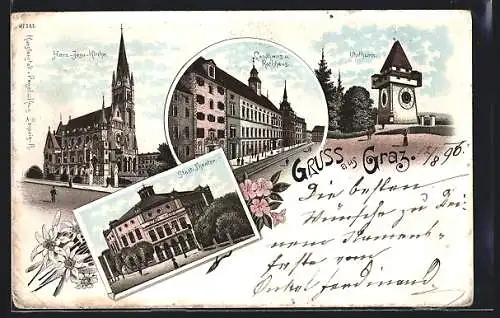 Herz-Jesu-Kirche.
Landhaus u.
Rathhaus.
Uhrthurm.
Stadt-Theater.
GRUSS aus Graz.
/8 96.
Die besten
Wünsche zu Dei
nem Namens-
feste vom
Onkel Ferdinand.